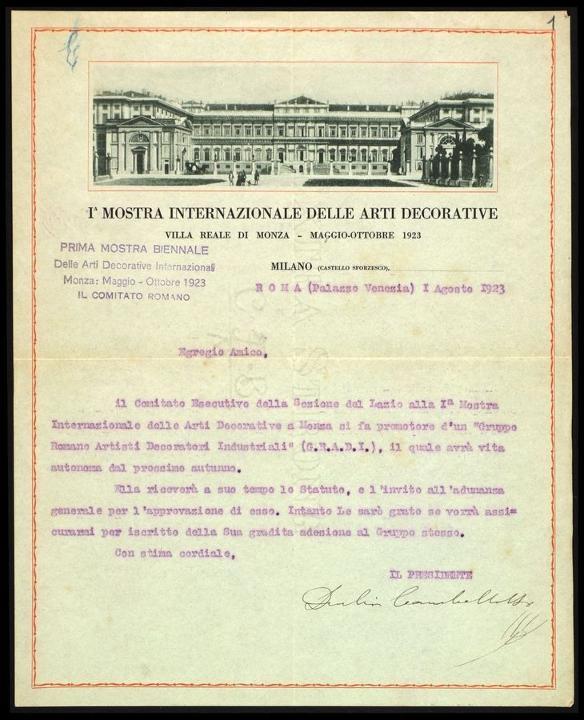 1
Iª MOSTRA INTERNAZIONALE DELLE ARTI DECORATIVE
VILLA REALE DI MONZA - MAGGIO-OTTOBRE 1923
PRIMA MOSTRA BIENNALE
Delle Arti Decorative Internazionali
Monza: Maggio - Ottobre 1923
IL COMITATO ROMANO
MILANO (CASTELLO SFORZESCO),
R O M A (Palazzo Venezia) I Agosto 1923
Egregio Amico,
il Comitato Esecutivo della Sezione del Lazio alla Iª Mostra
Internazionale delle Arti Decorative a Monza si fa promotore d'un "Gruppo
Romano Artisti Decoratori Industriali" (G.R.A.D.I.), il quale avrà vita
autonoma dal prossimo autunno.
Ella riceverà a suo tempo lo Statuto, e l'invito all'adunanza
generale per l'approvazione di esso. Intanto Le sarò grato se vorrà assi=
curarmi per iscritto della Sua gradita adesione al Gruppo stesso.
Con stima cordiale,
IL PRESIDENTE
Duilio Cambellotti